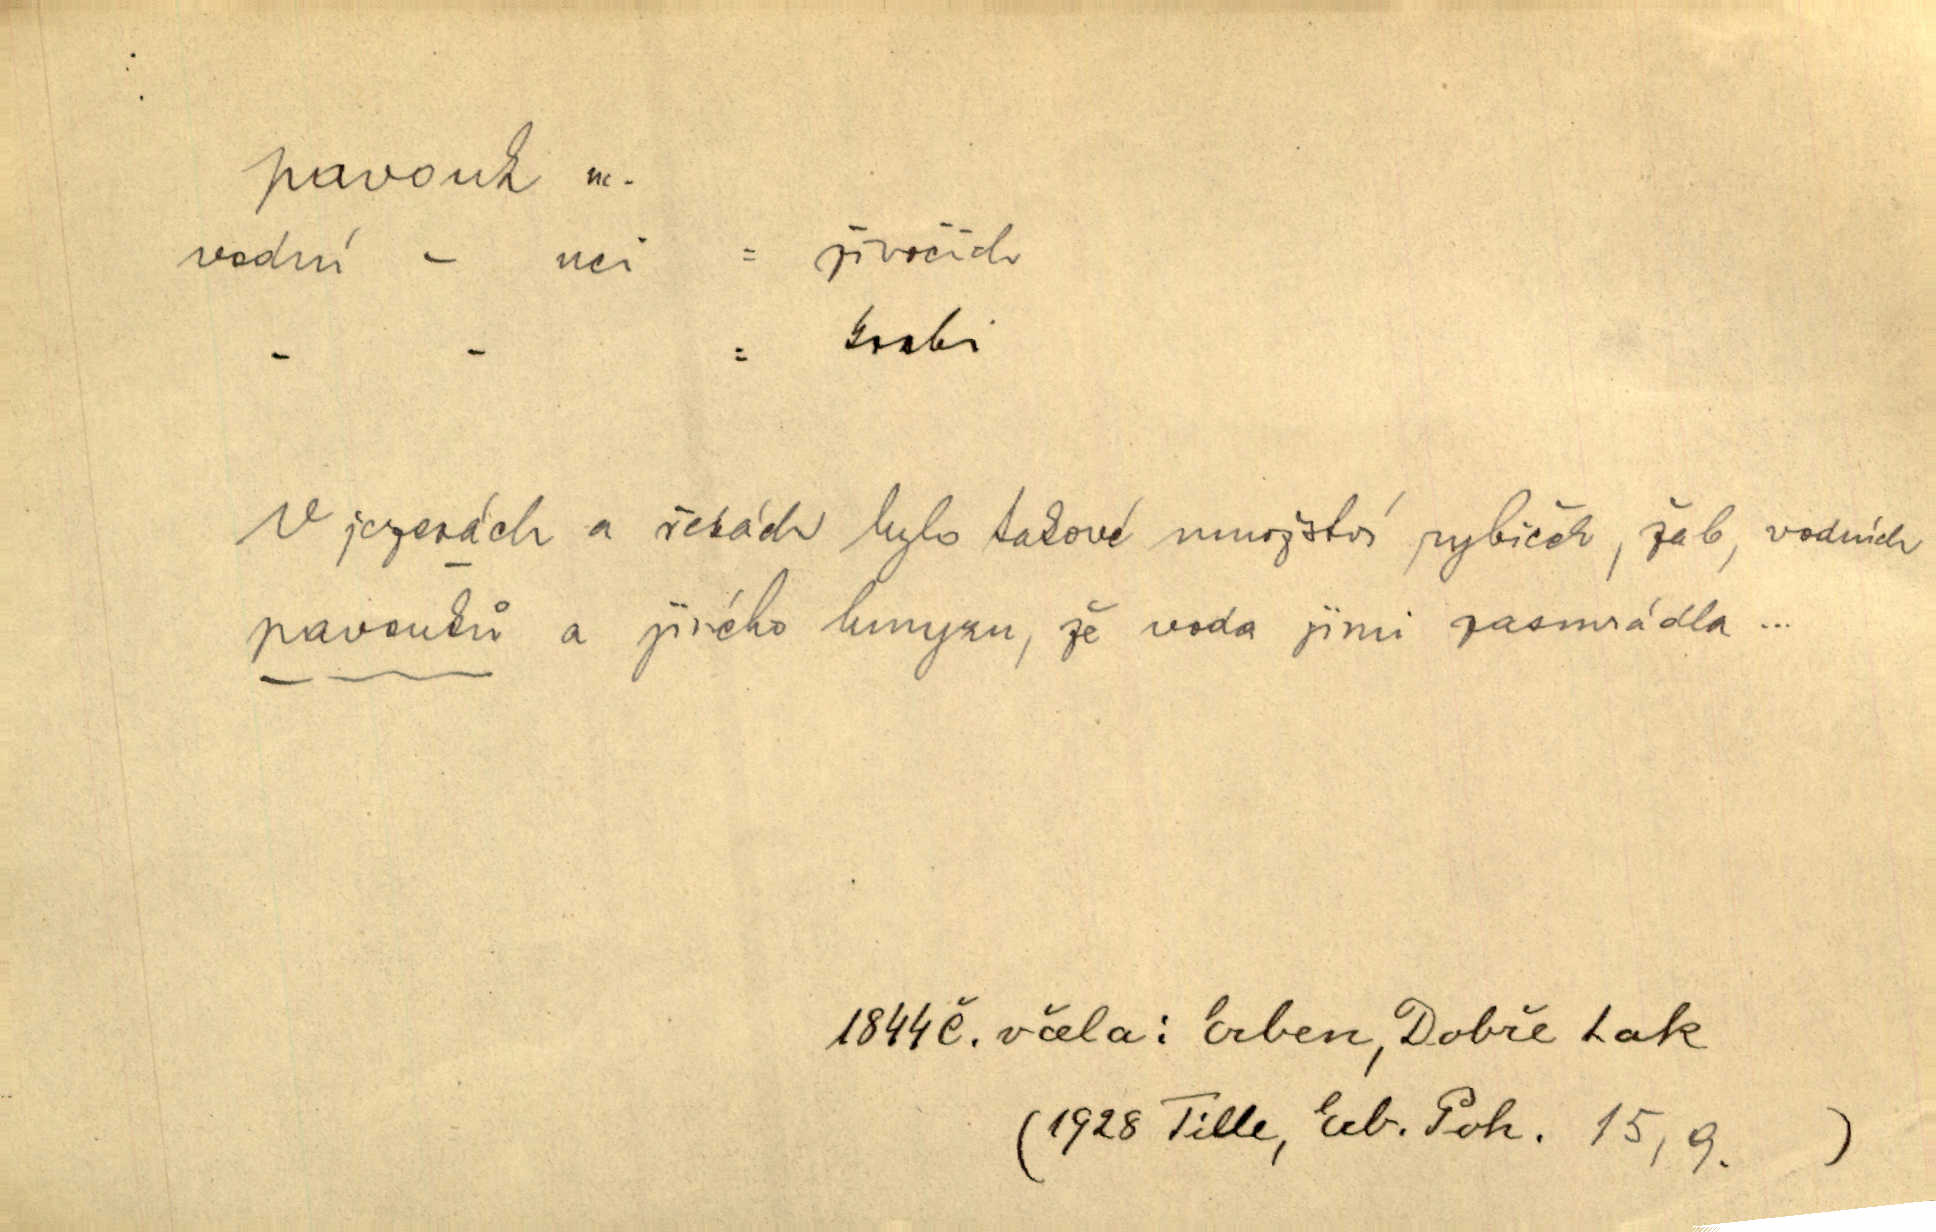 pavouk m.
vodní – uci = živočich
– – = krabi
V jezerách a řekách bylo takové množství rybiček, žab, vodních
pavouků a jiného hmyzu, že voda jimi zasmrádla ...
1844 Č. včela: Erben, Dobře tak
(1928 Tille, Erb. Poh. 15, 9. )